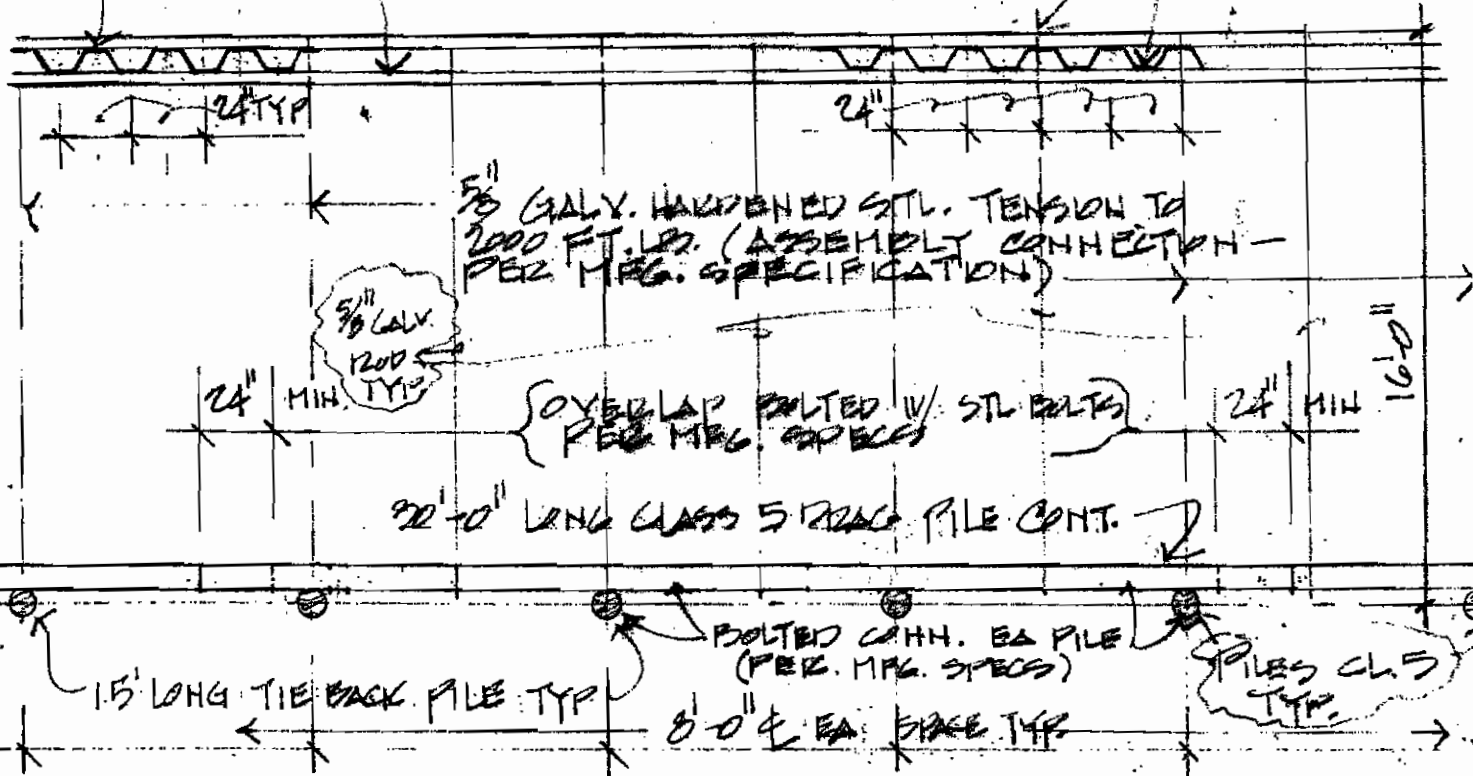 24" TYP
24"
5/8" GALV. HARDENED STL. TENSION TO
2000 FT. LB. (ASSEMBLY CONNECTION -
PER MFG. SPECIFICATION)
5/8" GALV.
ROD
TYP
16'-0"
24" MIN.
OVERLAP BOLTED W/ STL BOLTS
PER MFG. SPECS
24" MIN
30'-0" LONG CLASS 5 DRAG PILE CONT.
BOLTED CONN. EA PILE
(PER. MFG. SPECS)
PILES CL. 5
TYP.
15' LONG TIE BACK PILE TYP
8'-0" ℄ EA SPACE TYP